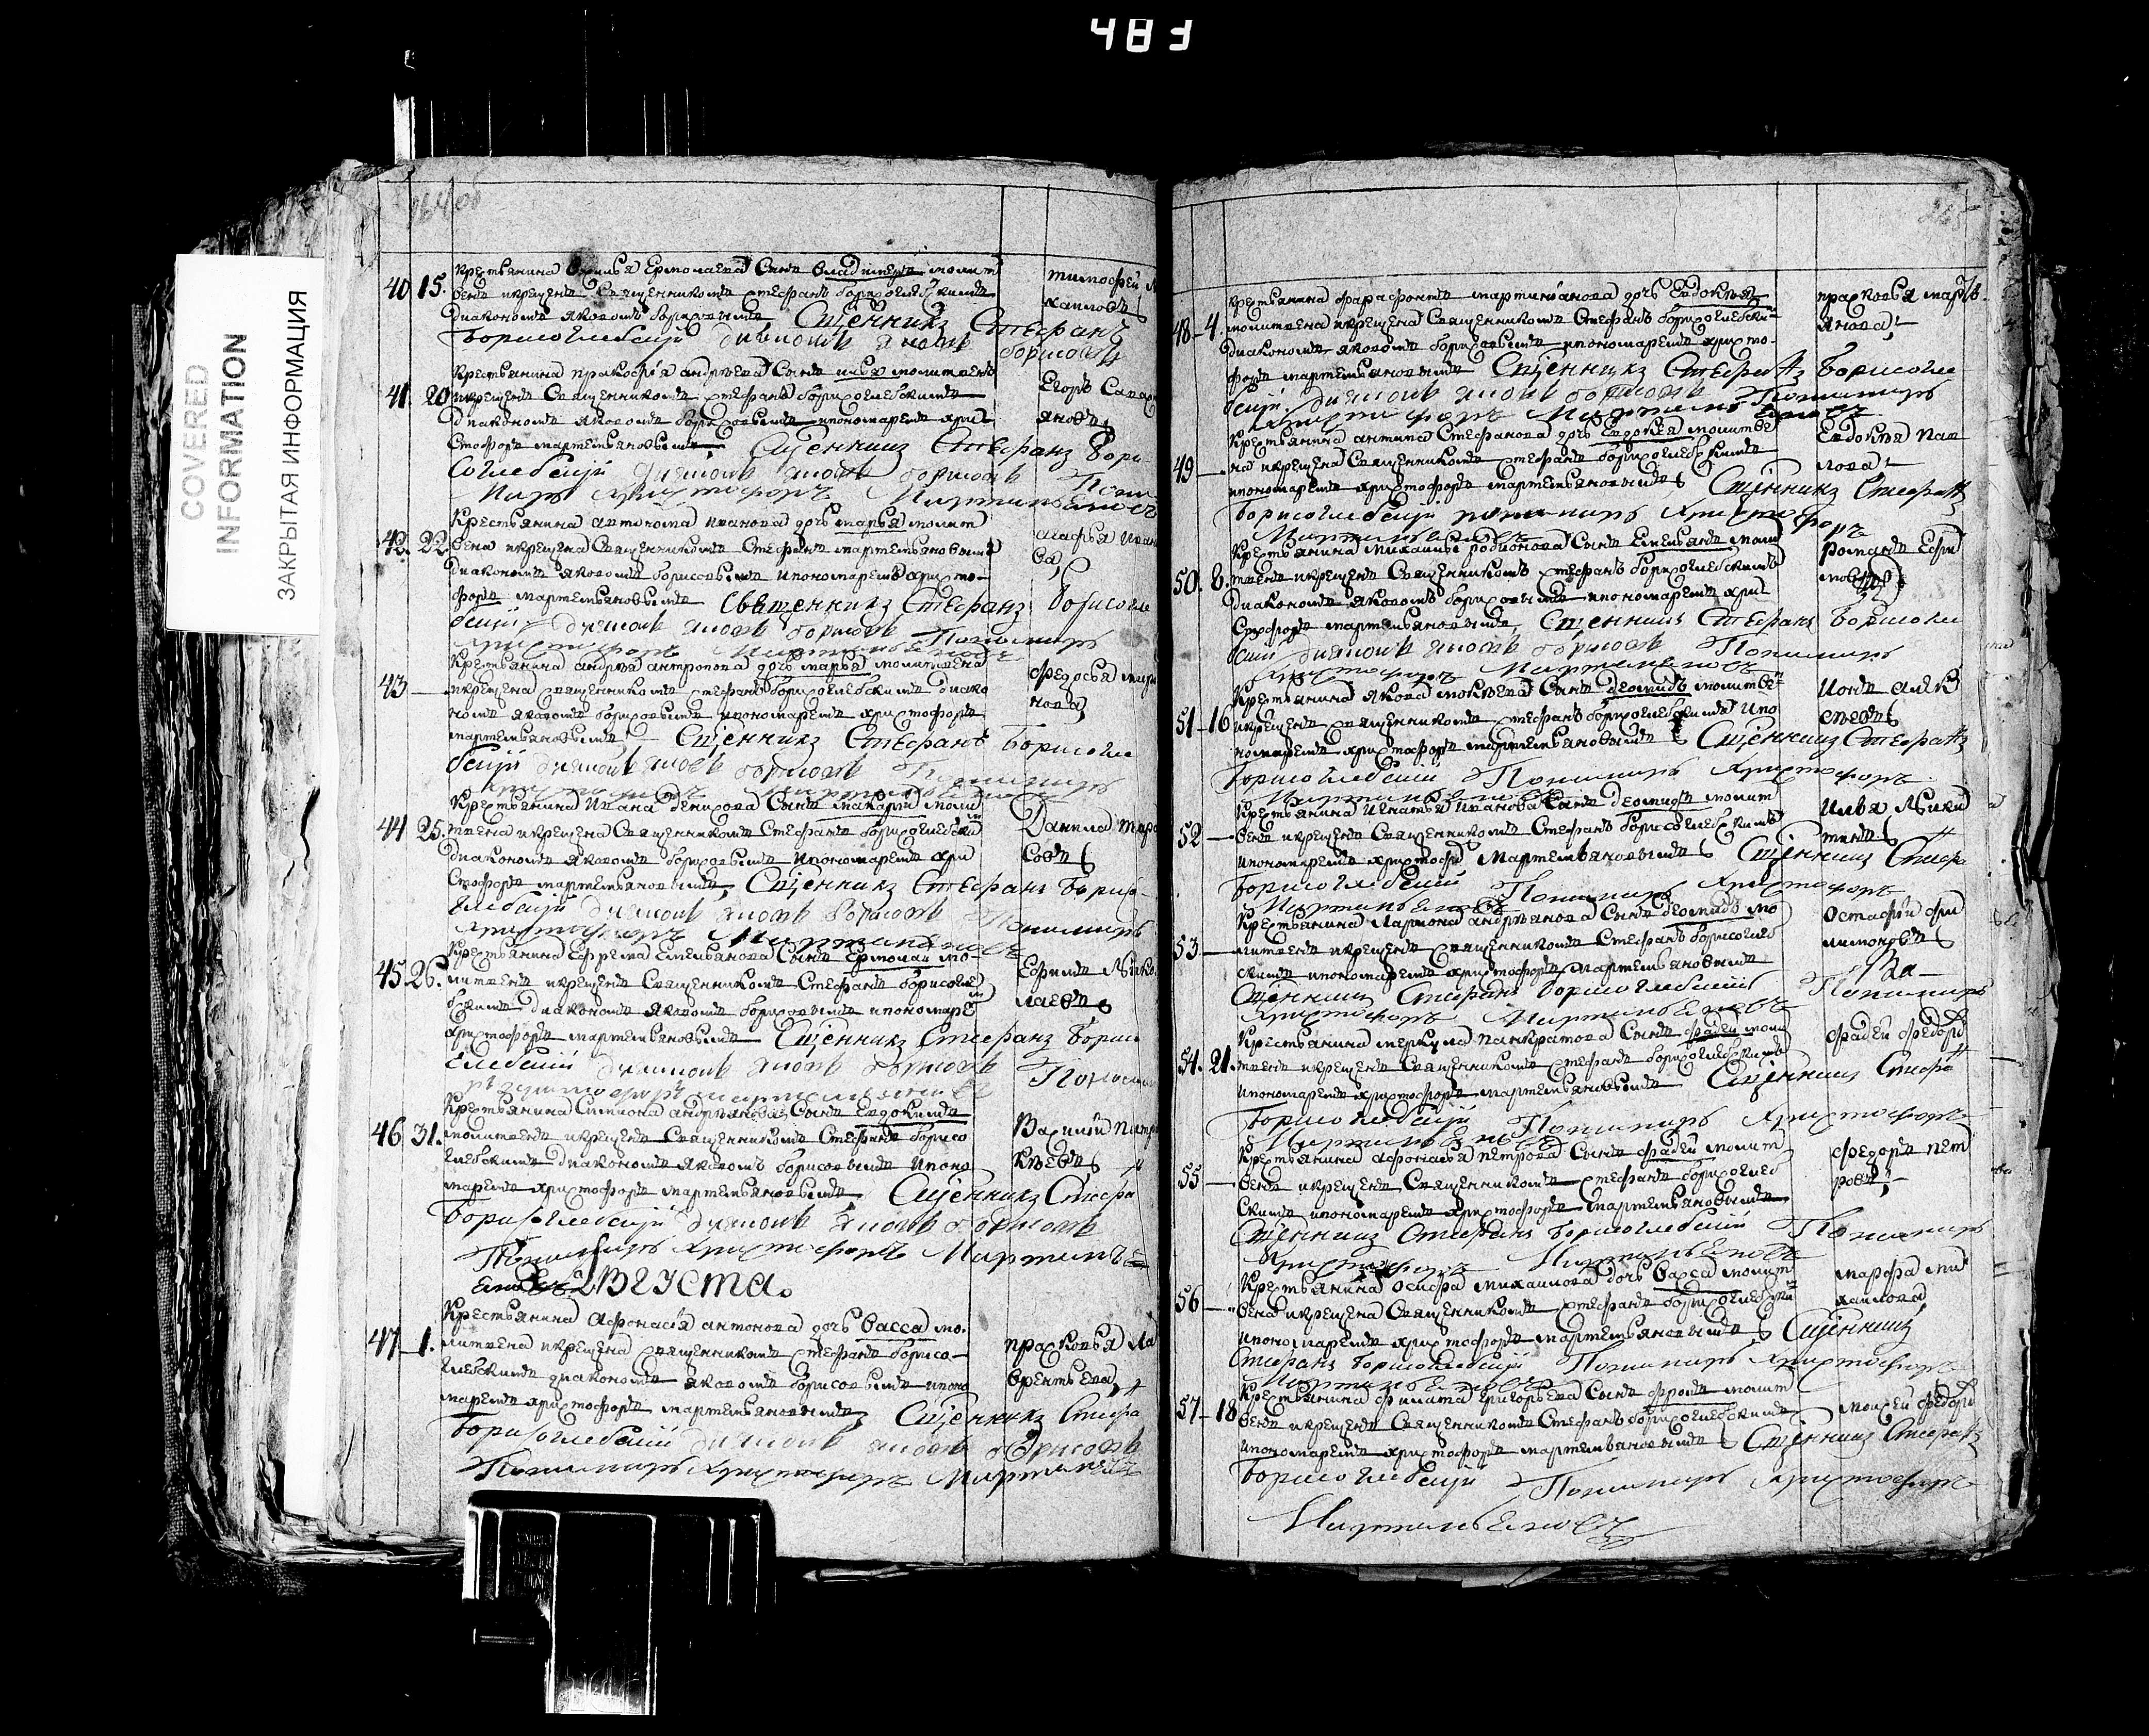 483
COVERED
INFORMATION
ЗАКРЫТАЯ ИНФОРМАЦИЯ
264 об
40 15. крестьянина Ермолаева сынъ владимеръ молит
венъ икрещенъ священникомъ стефаномъ борисоглебскимъ
диакономъ яковомъ борисовымъ Сщенникъ Стефанъ
Борисоглебский диаконъ яковъ борисовъ
тимофей
хаиловъ
Крестьянина прокофья андреева сынъ илья молитвенъ
41. 20 икрещенъ священникомъ стефаномъ борисоглебскимъ
диакономъ яковомъ борисовымъ ипономаремъ хри
стофоръ мартемьяновымъ Сщенникъ Стефанъ Бори
соглебский диаконъ яковъ борисовъ Поно
маръ христофоръ Мартемьяновъ
Егоръ
яновъ
Крестьянина антонома иванова дочь марья молит
42. 22 вена икрещена священникомъ стефанъ мартемьяновымъ
диакономъ яковомъ борисовымъ ипономаремъ христо-
форъ мартемьяновымъ Священникъ Стефанъ Борисогле
бский диаконъ яковъ борисовъ Пономаръ
христофоръ Мартемьяновъ
агафья иван
ва
Крестьянина андрея антропова дочь марья молитвена
43 — икрещена священникомъ стефанъ борисоглебскимъ диако
номъ яковомъ борисовымъ ипономаремъ христофоръ
мартемьяновымъ Сщенникъ Стефанъ Борисогле
бский диаконъ яковъ борисовъ Пономаръ
федосья
нова
Крестьянина Ивана денисова сынъ макарий моли
44 25. твенъ икрещенъ священникомъ стефанъ борисоглебски
диакономъ яковомъ борисовымъ ипономаремъ хри
стофоръ мартемьяновымъ Сщенникъ Стефанъ Борисо
глебский диаконъ яковъ борисовъ Пономаръ
христофоръ Мартемьяновъ
Данила тара
совъ
Крестьянина Ефрема Емельянова сынъ Ермолай мо-
45 26. литвенъ икрещенъ священникомъ стефанъ борисогле
бскимъ диакономъ яковомъ борисовымъ ипономаре
христофоръ мартемьяновымъ Сщенникъ Стефанъ Борисо
глебский диаконъ яковъ борисовъ Понома
ръ христофоръ мартемьяновъ
Ефимъ нико
лаевъ
Крестьянина Симиона андреянова сынъ Евдокимъ
46 31. молитвенъ икрещенъ священникомъ стефанъ борисо
глебскимъ диакономъ яковомъ борисовымъ ипоно
маремъ христофоръ мартемьяновымъ Сщенникъ Стефа
Борисоглебский диаконъ яковъ борисовъ
Пономаръ христофоръ Мартемь
яновъ Августа.
Василий
Крестьянина Афонасия антонова дочь васса мо-
47 1. литвена икрещена священникомъ стефанъ борисо-
глебскимъ диакономъ яковомъ борисовымъ ипоно
маремъ христофоръ мартемьяновымъ Сщенникъ Стефа
Борисоглебский диаконъ яковъ борисовъ
Пономаръ христофоръ Мартемья
прасковья ла
врентьева
265
крестьянина фарафонтъ мартиянова дочь Евдокия
48 - 4. молитвена икрещена священникомъ стефанъ борисоглебски
диакономъ яковомъ борисовымъ ипономаремъ христо-
форъ мартемьяновымъ Сщенникъ Стефанъ Борисогле
бский диаконъ яковъ борисовъ Пономаръ
Христофоръ Мартемьяновъ
прасковья марть
янова
Крестьянина антипа стефанова дочь Евдокея молитве
49 — на икрещена священникомъ стефанъ борисоглебскимъ
ипономаремъ христофоръ мартемьяновымъ Сщенникъ Стефанъ
Борисоглебский пономаръ христофоръ
Мартемьяновъ
Евдокия пав
лова
Крестьянина Михаилы родионова сынъ Емельянъ моли
50. 8. твенъ икрещенъ священникомъ стефанъ борисоглебскимъ
диакономъ яковомъ борисовымъ ипономаремъ хри
стофоръ мартемьяновымъ Сщенникъ Стефанъ Борисогле
бский диаконъ яковъ борисовъ Пономаръ
Христофоръ Мартемьяновъ
романъ Ефи
мовъ
Крестьянина Якова мокеева сынъ деомидъ молитве
51 - 16 икрещенъ священникомъ стефанъ борисоглебскимъ ипо
номаремъ христофоръ мартемьяновымъ Сщенникъ Стефанъ
Борисоглебский Пономаръ христофоръ
Мартемьяновъ
Иона алек
сеевъ
Крестьянина Игнатья Иванова сынъ деомидъ молит
52 — венъ икрещенъ священникомъ стефанъ борисоглебскимъ
ипономаремъ христофоръ Мартемьяновымъ Сщенникъ Стефа
Борисоглебский Пономаръ христофоръ
Мартемьяновъ
Илья
Крестьянина Лариона андреянова сынъ деомидъ мо
53 — литвенъ икрещенъ священникомъ стефанъ борисоглеб
скимъ ипономаремъ христофоръ мартемьяновымъ
Сщенникъ Стефанъ Борисоглебский Пономаръ
Христофоръ Мартемьяновъ
Остафий фи
лимоновъ
Крестьянина меркула панкратова сынъ фадей моли
54. 21. твенъ икрещенъ священникомъ стефанъ борисоглебскимъ
ипономаремъ христофоръ мартемьяновымъ Сщенникъ Стефа
Борисоглебский Пономаръ христофоръ
Мартемьяновъ
фадей федоро
Крестьянина Афонасья петрова сынъ фадей молит
55 — венъ икрещенъ священникомъ стефанъ борисоглеб
скимъ ипономаремъ христофоръ мартемьяновымъ
Сщенникъ Стефанъ Борисоглебский Пономаръ
Христофоръ Мартемьяновъ
федоръ пет
ровъ
Крестьянина Осифа михаилова дочь васса молит
56 — вена икрещена священникомъ стефанъ борисоглебски
ипономаремъ христофоръ мартемьяновымъ Сщенникъ
Стефанъ Борисоглебский Пономаръ христофоръ
Мартемьяновъ
марфа ми
хаилова
Крестьянина филата григорьева сынъ фролъ молит
57 - 18 венъ икрещенъ священникомъ стефанъ борисоглебскимъ
ипономаремъ христофоръ мартемьяновымъ Сщенникъ Стефанъ
Борисоглебский Пономаръ христофоръ
Мартемьяновъ
моисей федоро